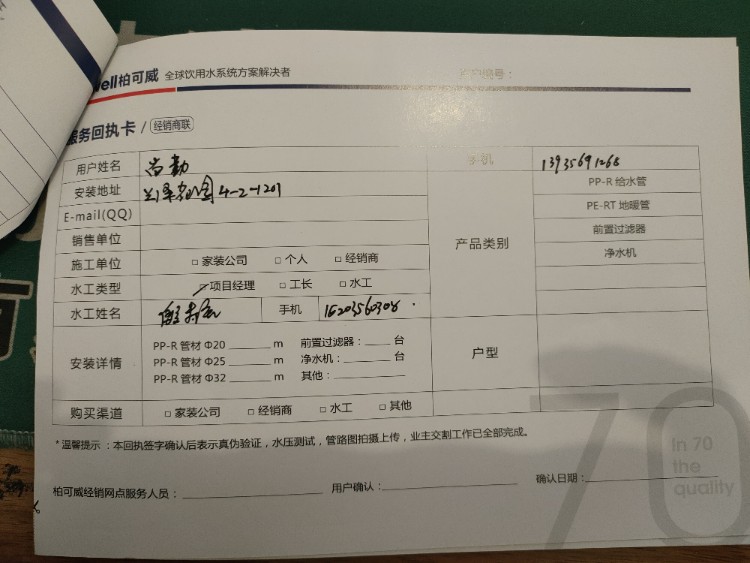 ell柏可威 全球饮用水系统方案解决者 客户编号：
服务回执卡 / 经销商联
用户姓名 尚勤 手机 13935691268
安装地址 4-2-1201
E-mail(QQ)
销售单位
施工单位 □ 家装公司 □ 个人 □ 经销商
水工类型 □ 项目经理 □ 工长 □ 水工
水工姓名 手机
产品类别
PP-R 给水管
PE-RT 地暖管
前置过滤器
净水机
安装详情
PP-R 管材 Φ20 m 前置过滤器： 台
PP-R 管材 Φ25 m 净水机： 台
PP-R 管材 Φ32 m 其他：
户型
购买渠道 □ 家装公司 □ 经销商 □ 水工 □ 其他
*温馨提示：本回执签字确认后表示真伪验证，水压测试，管路图拍摄上传，业主交割工作已全部完成。
70
In 70
the
quality
柏可威经销网点服务人员： 用户确认： 确认日期：